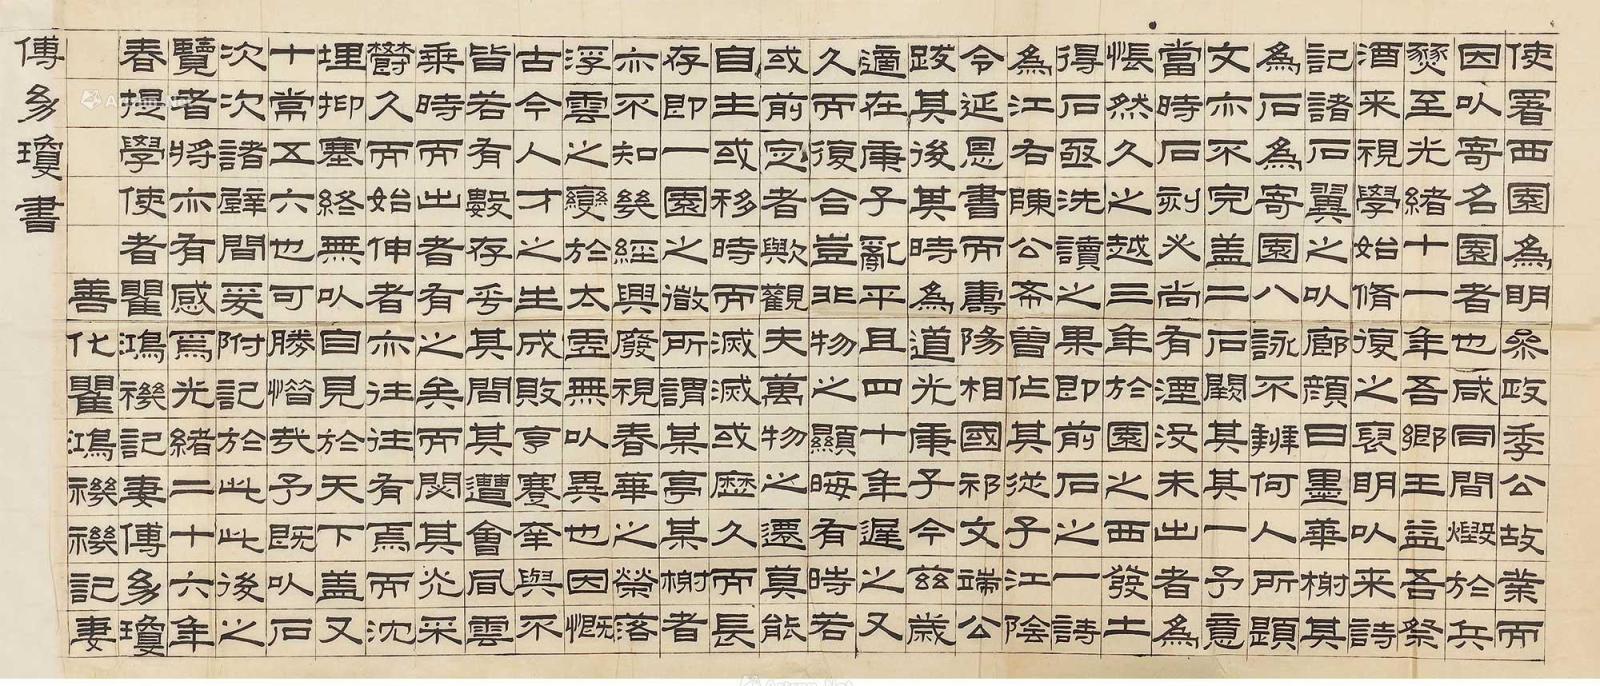 使署西園為明桑政季公故業而
因以寄名園者也咸同間燬於兵
燹至光緒十一年吾鄉王益吾祭
酒來視學始脩復之裒明以來詩
記諸石翼之以廊顏曰墨華榭其
為石為寄園八詠不辨何人所題
文亦不完盖二石闕其其一予意
當時石刻必尚有湮没未出者為
悵然久之越三年於園之西發土
得石亟洗讀之果即前石之一詩
為江右陳公斋曾佔其從子江陰
令延恩書而壽陽相國祁文端公
跋其後其時為道光庚子今茲歲
適在庚子亂平且四十年遲之又
久而復合豈非物之顯晦有時若
或前定者歟觀夫萬物之遷莫能
自主或移時而滅滅或歷久而長
存即一園之微所謂某亭某榭者
亦不知幾經興廢視春華之榮落
浮雲之變於太虛無以異也因慨
古今人才之生成敗亨蹇牵與不
皆若有數存乎其間其遭會風雲
乘時而出者有之矣而閔其光采
欝久而始伸者亦往往有焉而沈
埋抑塞終無以自見於天下盖又
十常五六也可勝惜哉予既以石
次次諸壁間爰附記於此此後之
覽者將亦有感焉光緒二十六年
春提學使者瞿鴻禨記妻傅多瓊
善化瞿鴻禨禨記妻
傅多瓊書